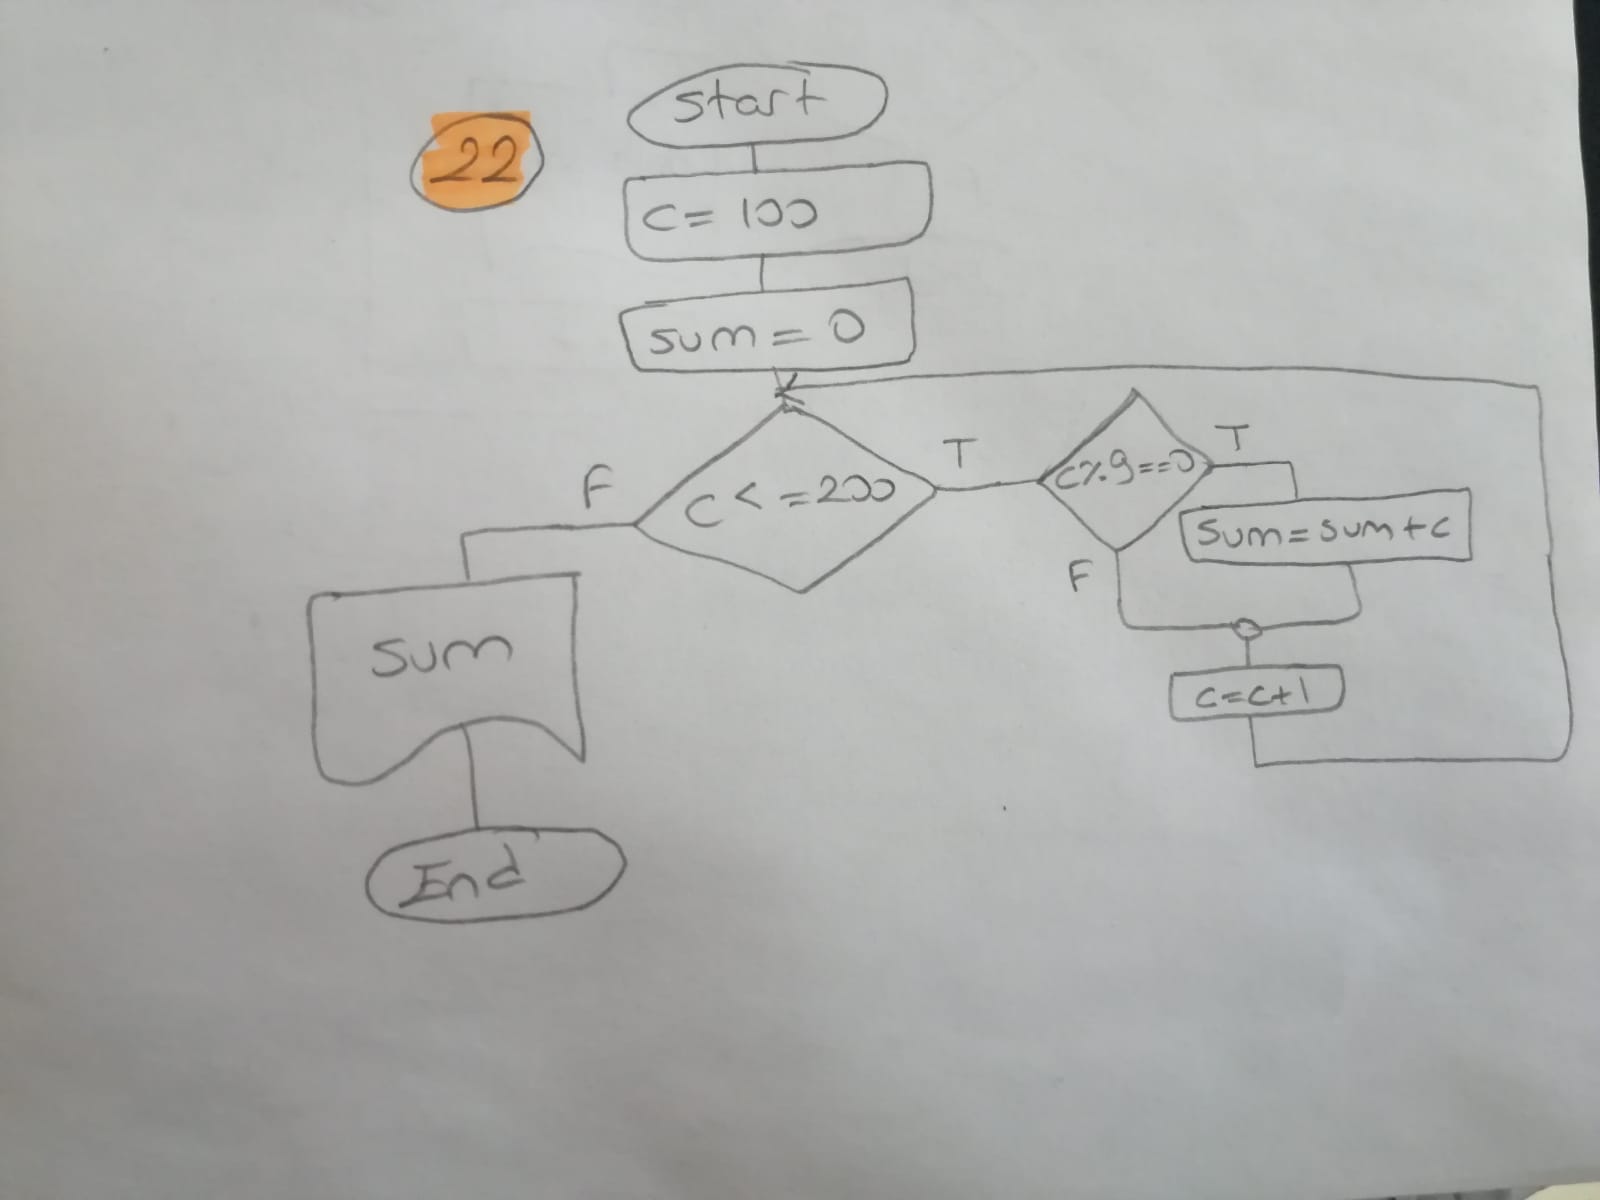 22
Start
C= 100
sum = 0
F
C<=200
T
C%9==0
T
Sum=sum+c
F
c=c+1
Sum
End